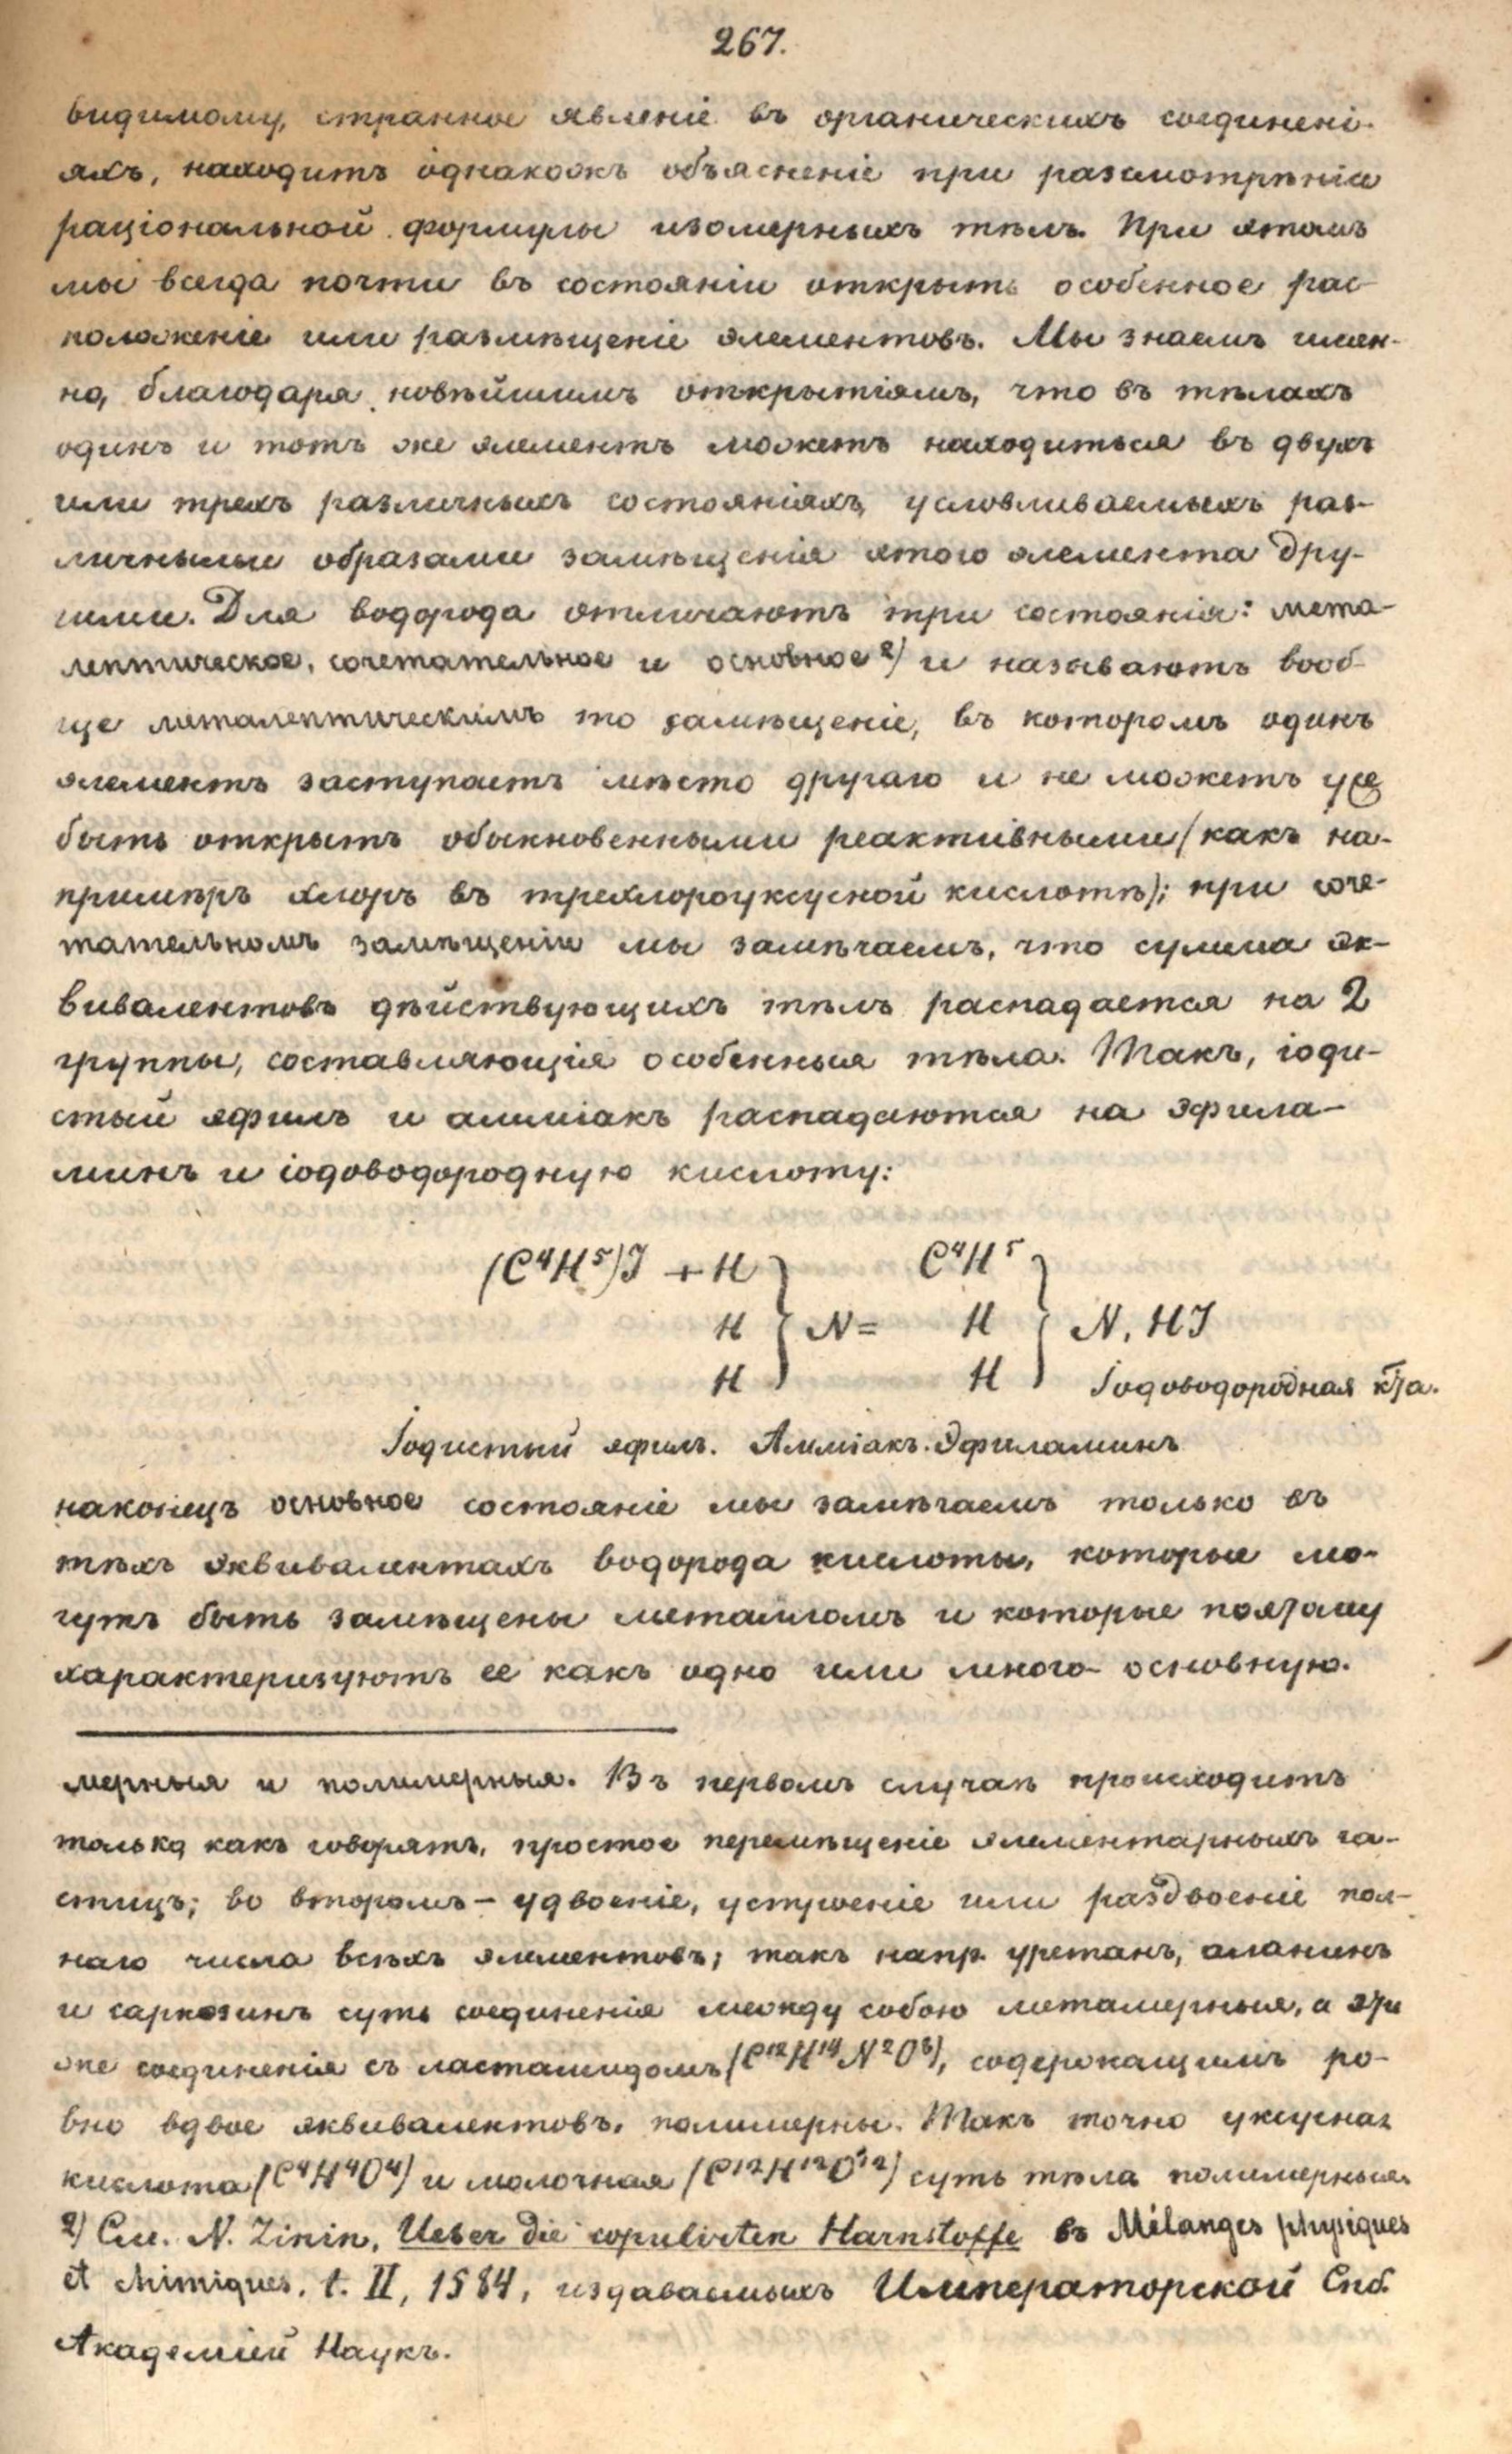 267.
видимому, странное явленіе въ органическихъ соединені-
яхъ, находитъ однакожъ объясненіе при разсмотрѣніи
раціональной формулы изомерныхъ тѣлъ. При этомъ
мы всегда почти въ состояніи открыть особенное рас-
положеніе или размѣщеніе элементовъ. Мы знаемъ имен-
но, благодаря новѣйшимъ открытіямъ, что въ тѣлахъ
одинъ и тотъ же элементъ можетъ находиться въ двухъ
или трехъ различныхъ состояніяхъ, условливаемыхъ раз-
личными образами замѣщенія этого элемента дру-
гими. Для водорода отличаютъ три состоянія: мета-
лептическое, сочетательное и основное 2) и называютъ вооб-
ще металептическимъ то замѣщеніе, въ которомъ одинъ
элементъ заступаетъ мѣсто другаго и не можетъ уже
быть открытъ обыкновенными реактивными (какъ на-
примѣръ хлоръ въ трехлороуксусной кислотѣ); при соче-
тательномъ замѣщеніи мы замѣчаемъ, что сумма эк-
вивалентовъ дѣйствующихъ тѣлъ распадается на 2
группы, составляющія особенныя тѣла. Такъ, іоди-
стый эфилъ и амміакъ распадаются на эфила-
минъ и іодоводородную кислоту:
(C⁴H⁵)J + H } C⁴H⁵ }
H } N = H } N, HJ
H } H } Іодоводородная к‑та.
Іодистый эфилъ. Амміакъ. Эфиламинъ
наконецъ основное состояніе мы замѣчаемъ только въ
тѣхъ эквивалентахъ водорода кислоты, которые мо-
гутъ быть замѣщены металломъ и которые поэтому
характеризуютъ ее какъ одно или много-основную.
мерныя и полимерныя. Въ первомъ случаѣ происходитъ
только, какъ говорятъ, простое перемѣщеніе элементарныхъ ча-
стицъ; во второмъ – удвоеніе, устроеніе или раздвоеніе пол-
наго числа всѣхъ элементовъ; такъ напр. уретанъ, аланинъ
и саркозинъ суть соединенія между собою метамерныя, а эти
же соединенія съ ластамидомъ (C¹²H¹⁴N²O⁸), содержащимъ ро-
вно вдвое эквивалентовъ, полимерны. Такъ точно уксусная
кислота (C⁴H⁴O⁴) и молочная (C¹²H¹²O¹²) суть тѣла полимерныя.
2) См. N. Zinin, Ueber die copulirten Harnstoffe въ Mélanges physiques
et chimiques. t. II, 1584, издаваемыхъ Императорской Спб.
Академіей Наукъ.